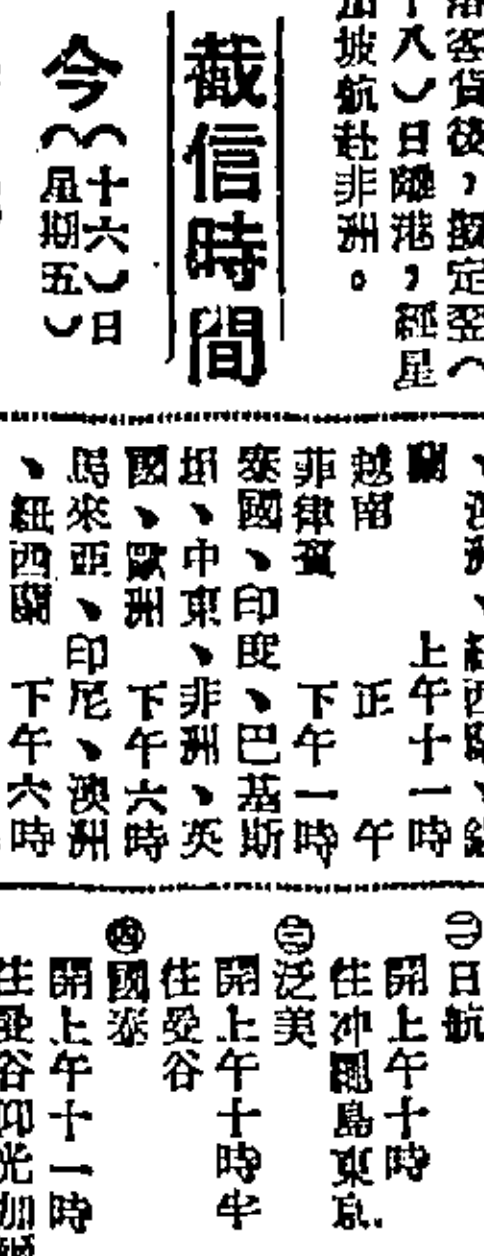 落客貨後，擬定翌（
十八）日離港，經星
加坡航赴非洲。
截信時間
今（十六）日
（星期五）
、澳洲、紐西蘭、錫
蘭　上午十一時
越南　正午
菲律賓　下午一時
泰國、印度、巴基斯
坦、中東、非洲、英
國、歐洲　下午六時
馬來亞、印尼、澳洲
、紐西蘭　下午六時
日航
開上午十時
往沖繩島東京.
㊂泛美
開上午十時半
往曼谷
㊃國泰
開上午十一時
往曼谷仰光加